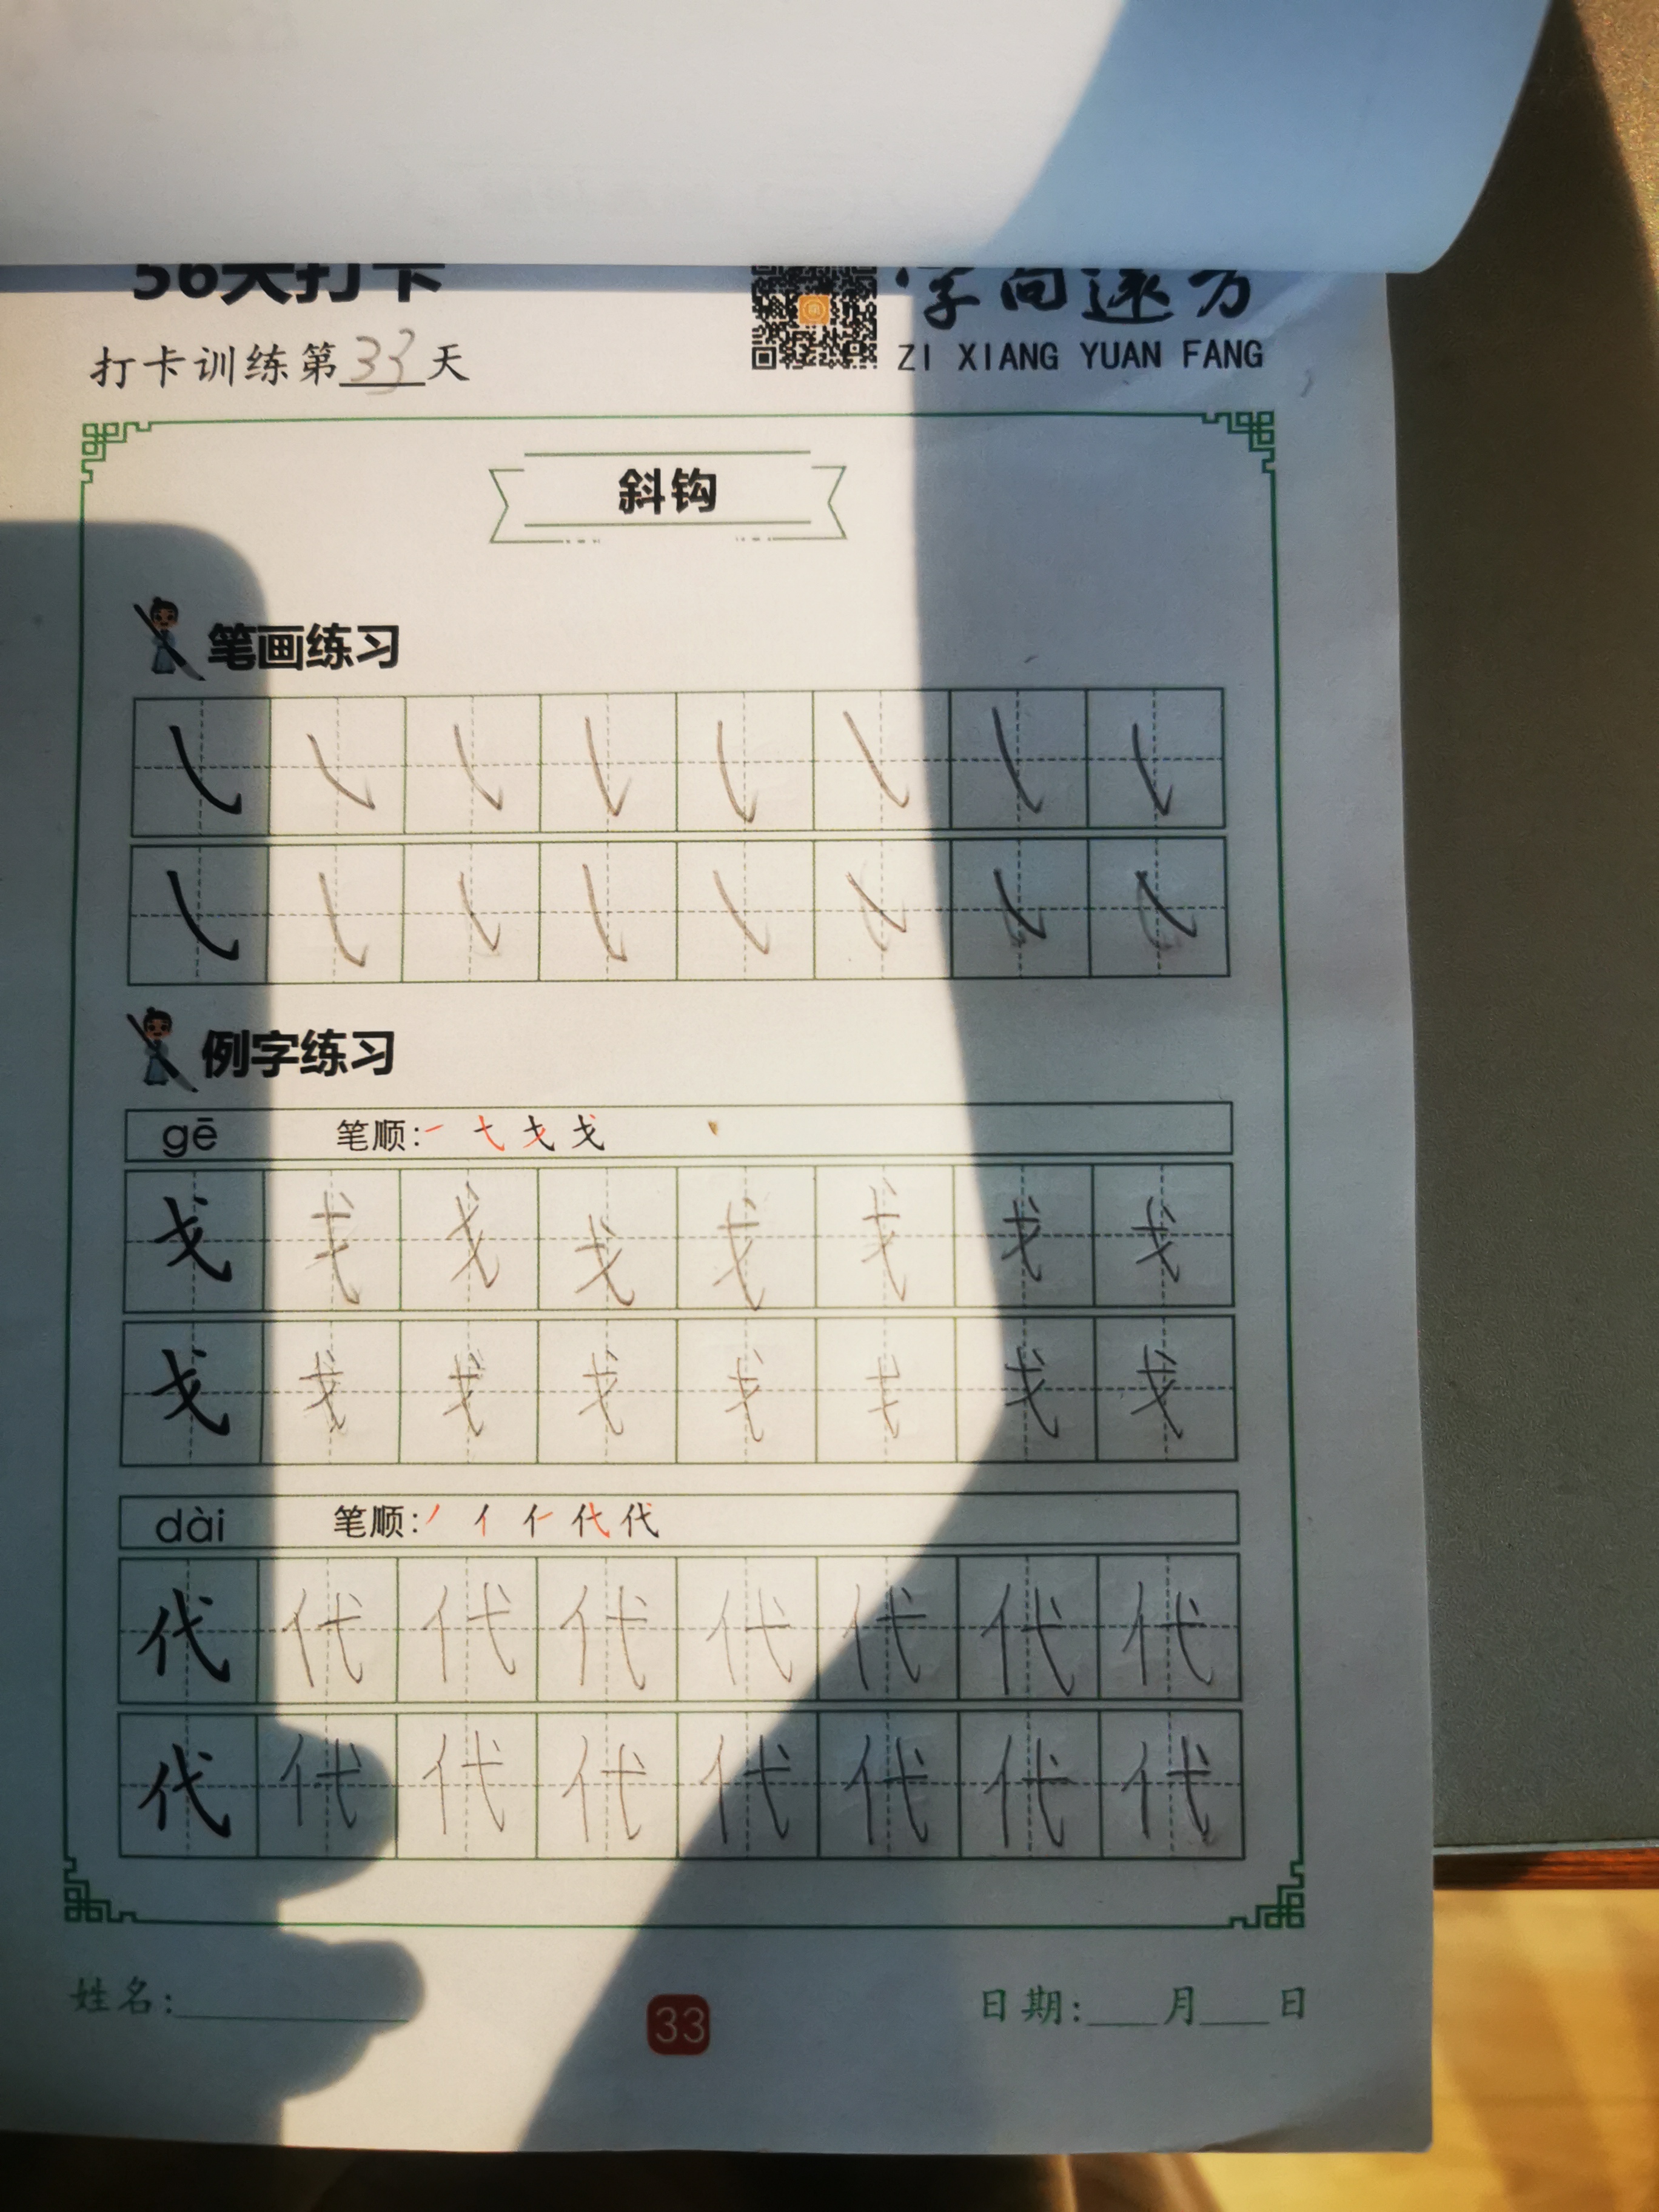 56天打卡
字向远方
ZI XIANG YUAN FANG
打卡训练第33天
斜钩
笔画练习
㇂ ㇂ ㇂ ㇂ ㇂ ㇂ ㇂ ㇂
㇂ ㇂ ㇂ ㇂ ㇂ ㇂ ㇂ ㇂
例字练习
gē 笔顺: 戈
戈 戈 戈 戈 戈 戈 戈 戈
戈 戈 戈 戈 戈 戈 戈 戈
dài 笔顺: 代
代 代 代 代 代 代 代 代
代 代 代 代 代 代 代 代
姓名:
33
日期:___月___日